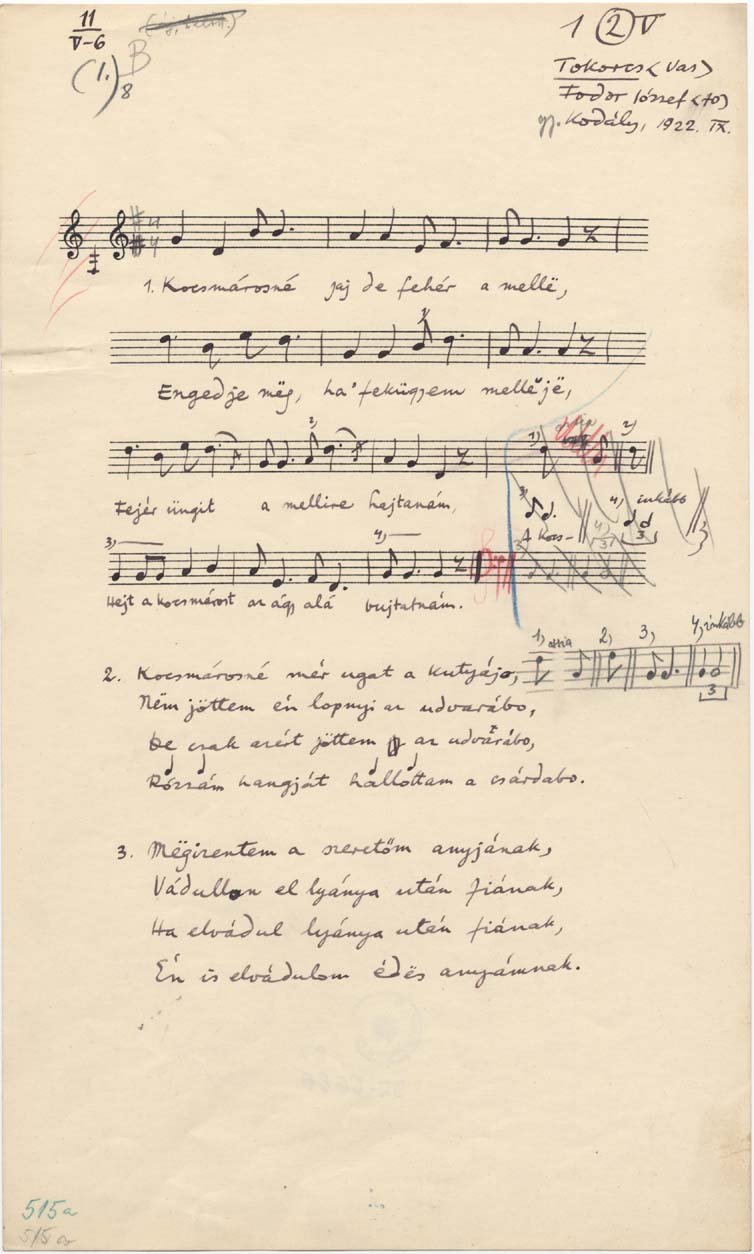 11
V-6
(1.) B
8
1 2 V
Tokorcs (Vas)
Fodor József (70)
gy. Kodály, 1922. IX.
4
4
1. Kocsmárosné jaj de fehér a mellë,
1)
Engedje mëg, ha fekügyem mellejë,
2) 1) 2)
Fejér üngit a mellire hajtanám,
3) 4) inkább
A kocs-
3) 4)
Hejt a kocsmárost az ágy alá bujtatnám.
1) 2) 3) 4) inkább
3
2. Kocsmárosné mér ugat a kutyájo,
Nëm jöttem én lopnyi az udvarábo,
De csak azért jöttem az udvarábo,
Rózsám hangját hallottam a csárdabo.
3. Mëgizentem a szeretőm anyjának,
Vádullon el lyánya után fiának,
Ha elvádul lyánya után fiának,
Én is elvádulom édës anyámnak.
515a
515a